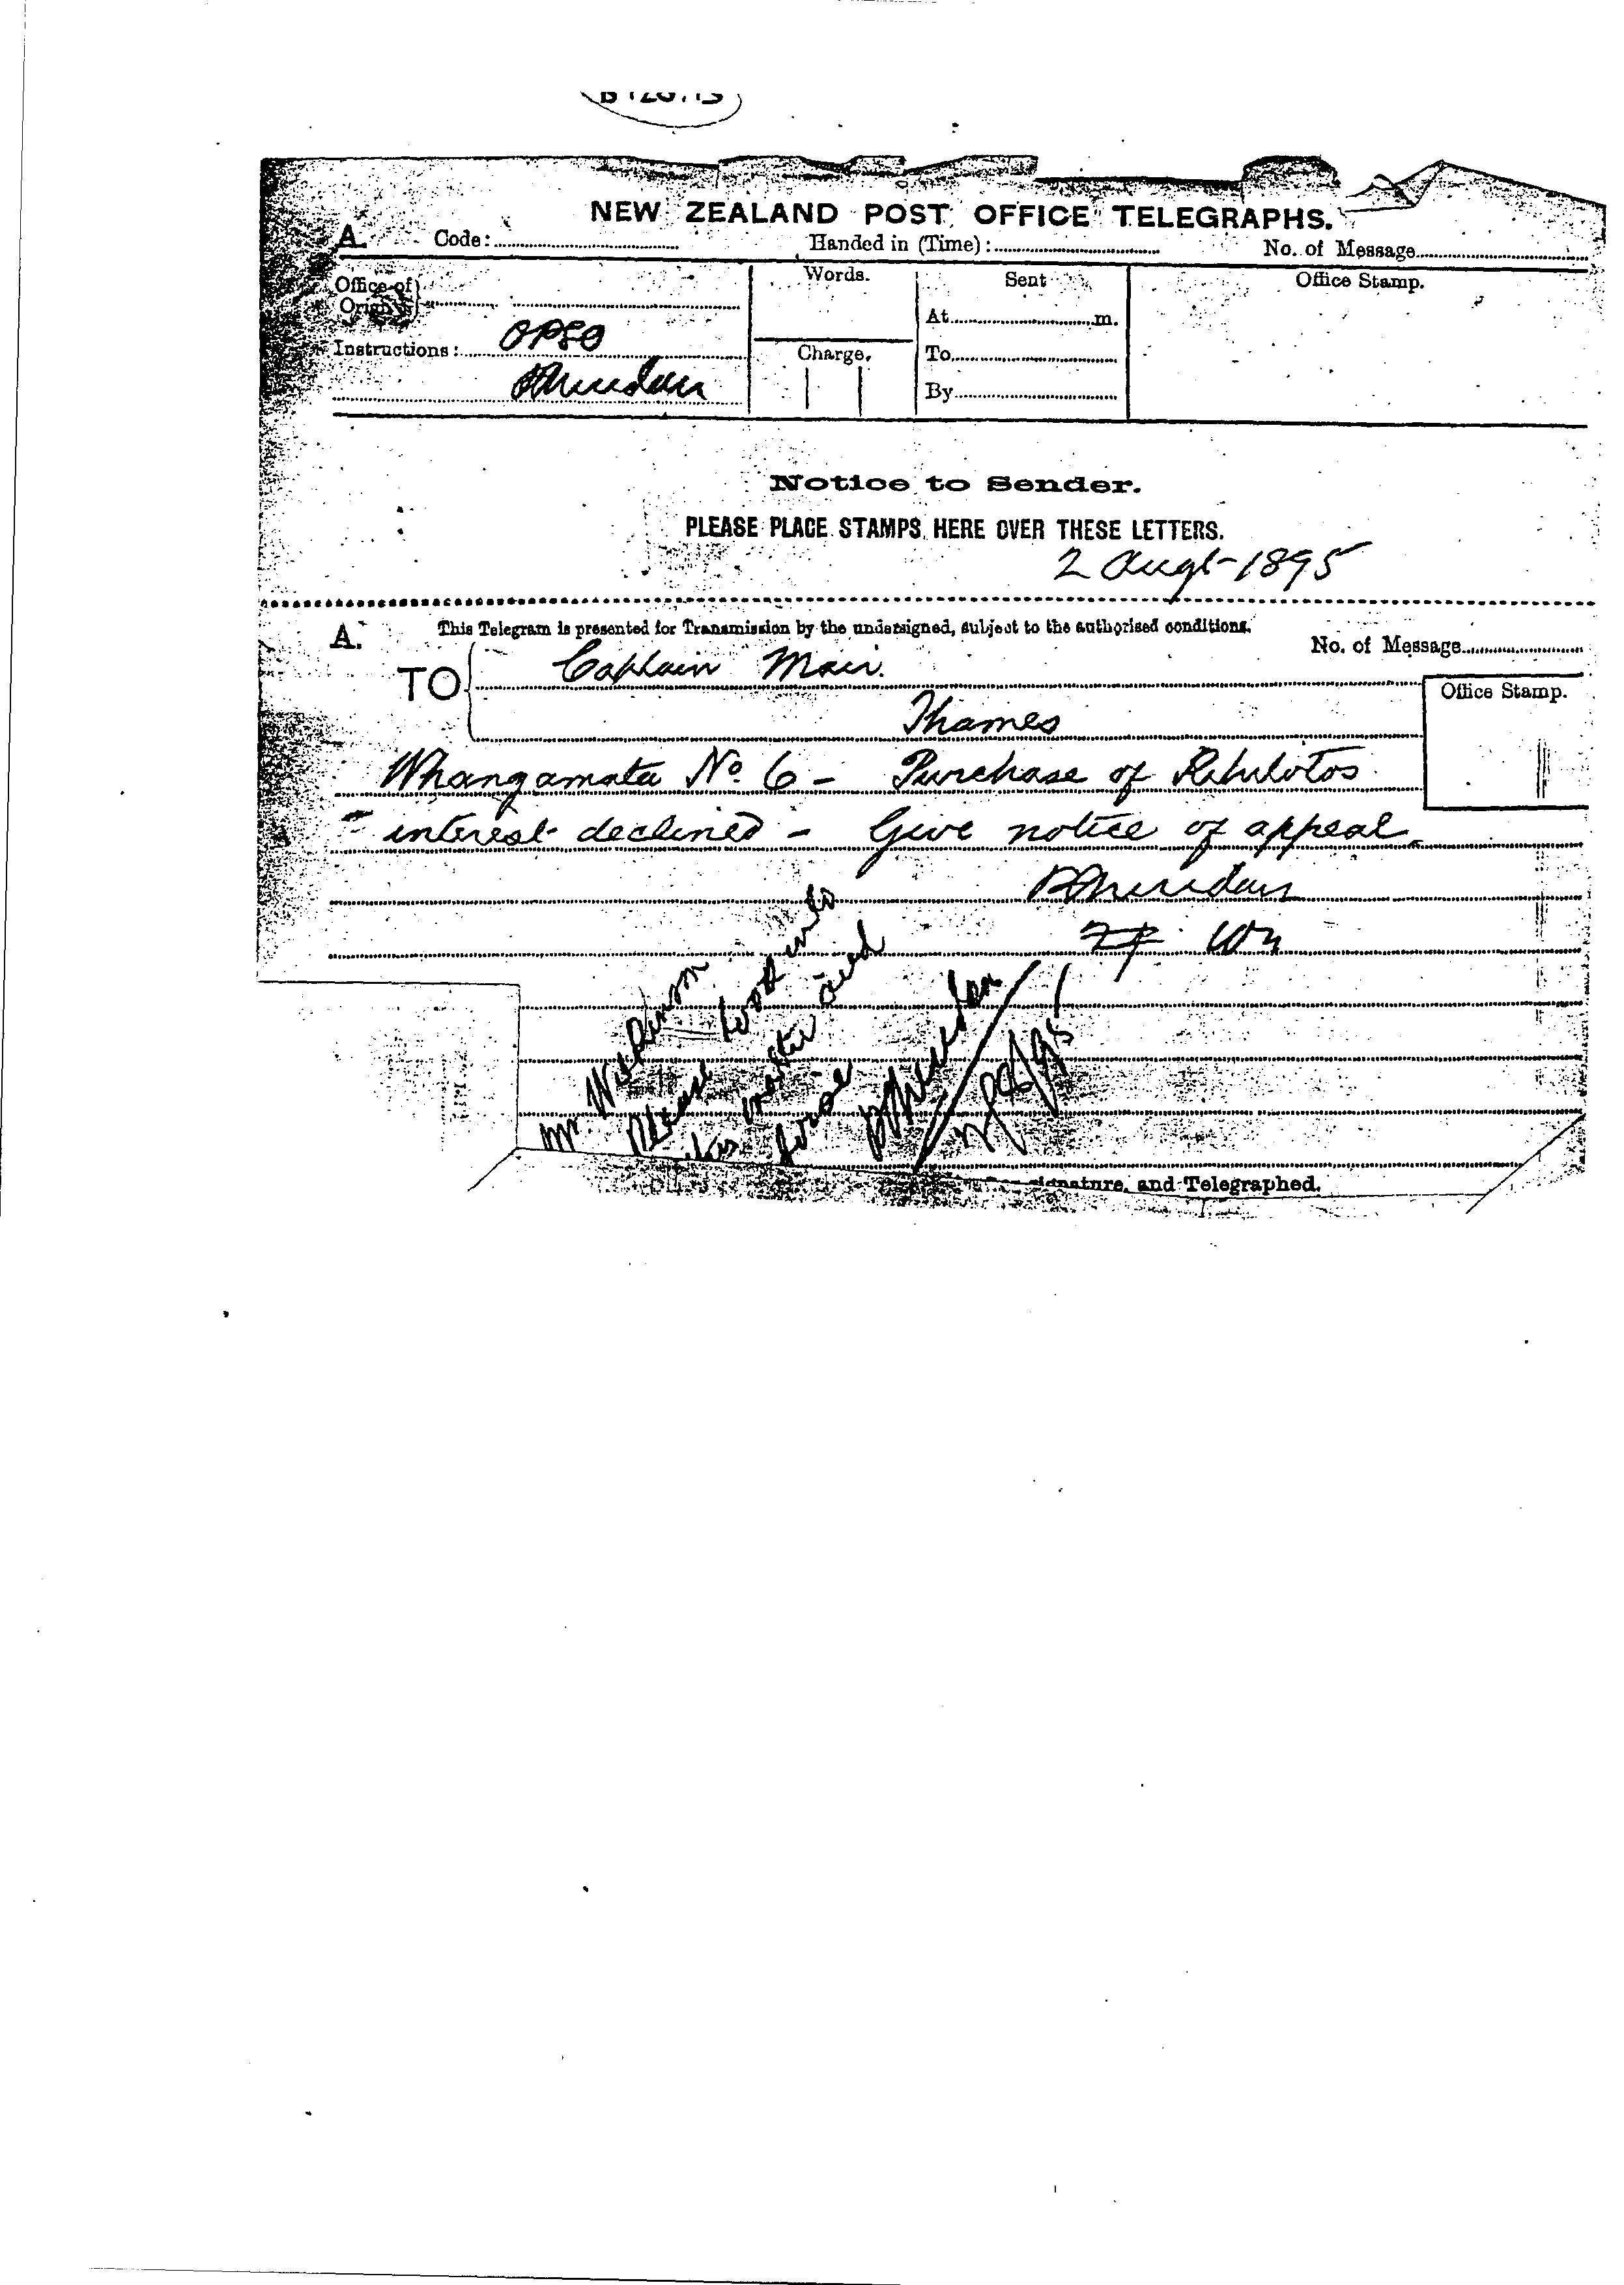 NEW ZEALAND POST OFFICE TELEGRAPHS.
A. Code: Handed in (Time): No. of Message
Office of Origin Words. Sent Office Stamp.
At m.
Instructions: OPSO Charge. To
PSheridan By
Notice to Sender.
PLEASE PLACE STAMPS HERE OVER THESE LETTERS.
2 Augt 1895
A. This Telegram is presented for Transmission by the undersigned, subject to the authorised conditions. No. of Message
TO Captain Mair. Office Stamp.
Thames
Whangamata No 6 - Purchase of
interest declined - Give notice of appeal
PSheridan
Mr. Wilkinson
Please look into
this matter and
PSheridan
signature, and Telegraphed.